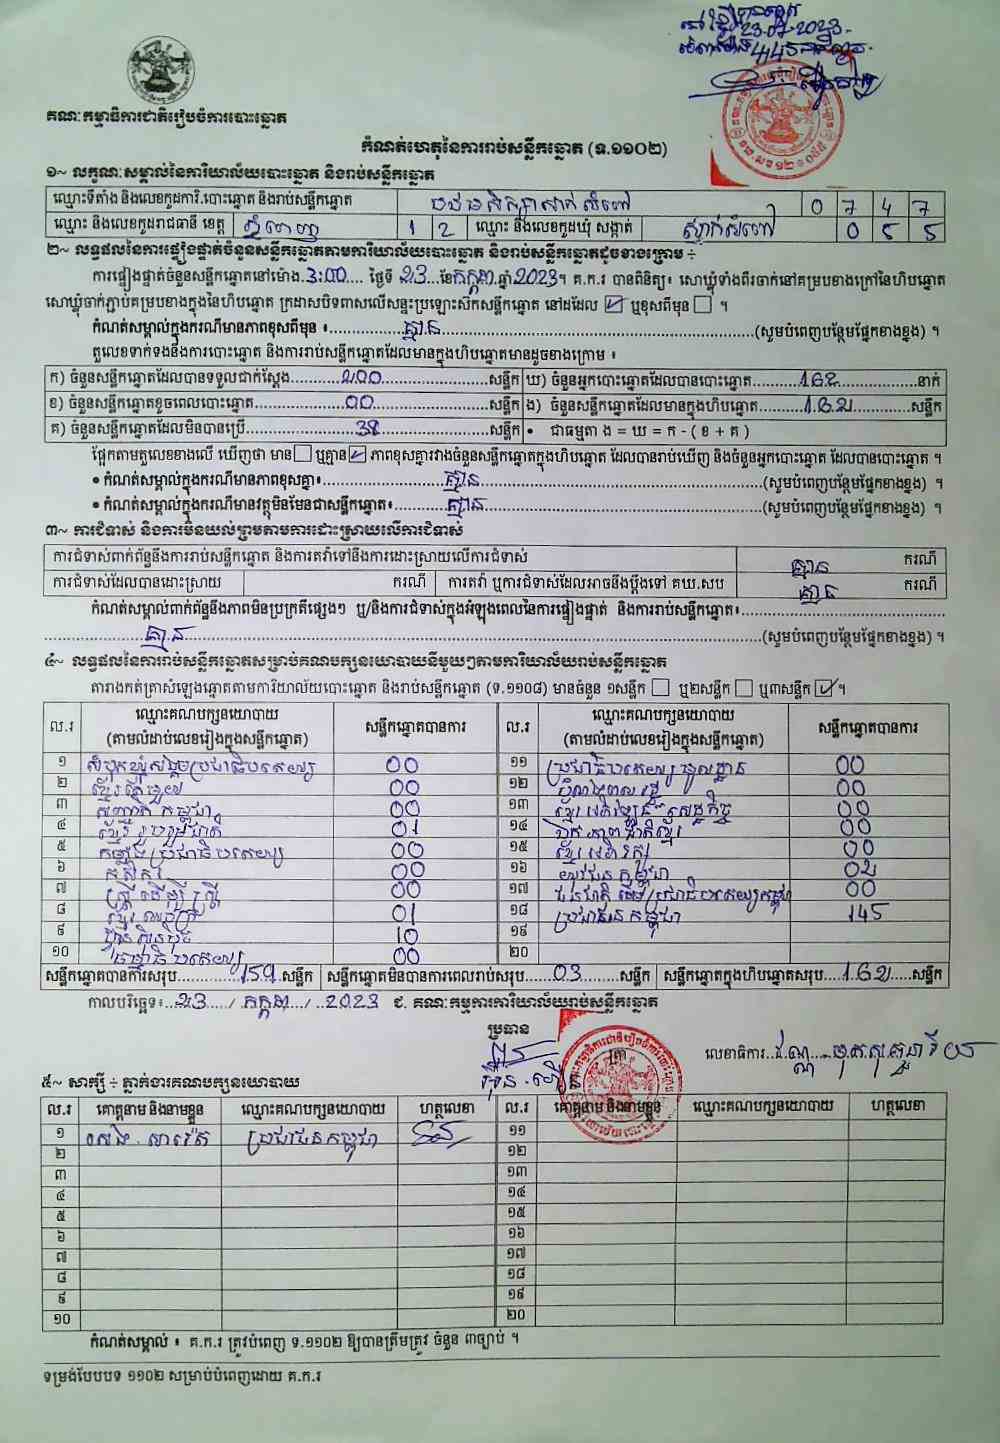 23-07-2023
គណៈកម្មាធិការជាតិរៀបចំការបោះឆ្នោត
កំណត់ហេតុនៃការរាប់សន្លឹកឆ្នោត (ទ.១១០២)
១~ លក្ខណៈសម្គាល់នៃការិយាល័យបោះឆ្នោត និងរាប់សន្លឹកឆ្នោត
ឈ្មោះទីតាំង និងលេខកូដការិ.បោះឆ្នោត និងរាប់សន្លឹកឆ្នោត 0 7 4 7
ឈ្មោះ និងលេខកូដរាជធានី ខេត្ត ភ្នំពេញ 1 2 ឈ្មោះ និងលេខកូដឃុំ សង្កាត់ 0 5 5
២~ លទ្ធផលនៃការផ្ទៀងផ្ទាត់ចំនួនសន្លឹកឆ្នោតតាមការិយាល័យបោះឆ្នោត និងរាប់សន្លឹកឆ្នោតដូចខាងក្រោម ÷
ការផ្ទៀងផ្ទាត់ចំនួនសន្លឹកឆ្នោតនៅម៉ោង.3:00.... ថ្ងៃទី 23...ខែកក្កដា.ឆ្នាំ2023។ គ.ក.រ បានពិនិត្យ៖ សោឃ្លុំទាំងពីរចាក់នៅគម្របខាងក្រៅនៃហិបឆ្នោត
សោឃ្លុំចាក់ភ្ជាប់គម្របខាងក្នុងនៃហិបឆ្នោត ក្រដាសបិទពាសលើសន្ទះប្រឡោះស៊កសន្លឹកឆ្នោត នៅដដែល ☑ ឬខុសពីមុន ☐ ។
កំណត់សម្គាល់ក្នុងករណីមានភាពខុសពីមុន ៖ គ្មាន (សូមបំពេញបន្ថែមផ្នែកខាងខ្នង) ។
តួលេខទាក់ទងនឹងការបោះឆ្នោត និងការរាប់សន្លឹកឆ្នោតដែលមានក្នុងហិបឆ្នោតមានដូចខាងក្រោម ៖
ក) ចំនួនសន្លឹកឆ្នោតដែលបានទទួលជាក់ស្ដែង 200 សន្លឹក ឃ) ចំនួនអ្នកបោះឆ្នោតដែលបានបោះឆ្នោត 162 នាក់
ខ) ចំនួនសន្លឹកឆ្នោតខូចពេលបោះឆ្នោត 00 សន្លឹក ង) ចំនួនសន្លឹកឆ្នោតដែលមានក្នុងហិបឆ្នោត 162 សន្លឹក
គ) ចំនួនសន្លឹកឆ្នោតដែលមិនបានប្រើ 38 សន្លឹក • ជាធម្មតា ង = ឃ = ក - ( ខ + គ )
ផ្អែកតាមតួលេខខាងលើ ឃើញថា មាន ☐ ឬគ្មាន ☑ ភាពខុសគ្នារវាងចំនួនសន្លឹកឆ្នោតក្នុងហិបឆ្នោត ដែលបានរាប់ឃើញ និងចំនួនអ្នកបោះឆ្នោត ដែលបានបោះឆ្នោត ។
• កំណត់សម្គាល់ក្នុងករណីមានភាពខុសគ្នា៖ គ្មាន (សូមបំពេញបន្ថែមផ្នែកខាងខ្នង) ។
• កំណត់សម្គាល់ក្នុងករណីមានវត្ថុមិនមែនជាសន្លឹកឆ្នោត៖ គ្មាន (សូមបំពេញបន្ថែមផ្នែកខាងខ្នង) ។
៣~ ការជំទាស់ និងការមិនយល់ព្រមតាមការដោះស្រាយលើការជំទាស់
ការជំទាស់ពាក់ព័ន្ធនឹងការរាប់សន្លឹកឆ្នោត និងការតវ៉ាទៅនឹងការដោះស្រាយលើការជំទាស់ គ្មាន ករណី
ការជំទាស់ដែលបានដោះស្រាយ ករណី ការតវ៉ា ឬការជំទាស់ដែលអាចនឹងប្ដឹងទៅ គឃ.សប គ្មាន ករណី
កំណត់សម្គាល់ពាក់ព័ន្ធនឹងភាពមិនប្រក្រតីផ្សេងៗ ឬ/និងការជំទាស់ក្នុងអំឡុងពេលនៃការផ្ទៀងផ្ទាត់ និងការរាប់សន្លឹកឆ្នោត៖
គ្មាន (សូមបំពេញបន្ថែមផ្នែកខាងខ្នង) ។
៤~ លទ្ធផលនៃការរាប់សន្លឹកឆ្នោតសម្រាប់គណបក្សនយោបាយនីមួយៗតាមការិយាល័យរាប់សន្លឹកឆ្នោត
តារាងកត់ត្រាសំឡេងឆ្នោតតាមការិយាល័យបោះឆ្នោត និងរាប់សន្លឹកឆ្នោត (ទ.១១០៨) មានចំនួន ១សន្លឹក ☐ ឬ២សន្លឹក ☐ ឬ៣សន្លឹក ☑ ។
ល.រ ឈ្មោះគណបក្សនយោបាយ (តាមលំដាប់លេខរៀងក្នុងសន្លឹកឆ្នោត) សន្លឹកឆ្នោតបានការ ល.រ ឈ្មោះគណបក្សនយោបាយ (តាមលំដាប់លេខរៀងក្នុងសន្លឹកឆ្នោត) សន្លឹកឆ្នោតបានការ
១ សំបុកឃ្មុំសង្គមប្រជាធិបតេយ្យ 00 ១១ ប្រជាធិបតេយ្យមូលដ្ឋាន 00
២ ខ្មែរតែមួយ 00 ១២ 00
៣ សញ្ជាតិកម្ពុជា 00 ១៣ ខ្មែរអភិវឌ្ឍន៍សេដ្ឋកិច្ច 00
៤ ខ្មែររួបរួមជាតិ 01 ១៤ ឯកភាពជាតិខ្មែរ 00
៥ កម្លាំងប្រជាធិបតេយ្យ 00 ១៥ ខ្មែរអភិរក្ស 00
៦ កសិករ 00 ១៦ យុវជនកម្ពុជា 02
៧ ស្ត្រីដើម្បីស្ត្រី 00 ១៧ ជនជាតិដើមប្រជាធិបតេយ្យកម្ពុជា 00
៨ ខ្មែរឈប់ក្រ 01 ១៨ ប្រជាជនកម្ពុជា 145
៩ ហ៊្វុនស៊ិនប៉ិច 10 ១៩
១០ ធម្មាធិបតេយ្យ 00 ២០
សន្លឹកឆ្នោតបានការសរុប 159 សន្លឹក សន្លឹកឆ្នោតមិនបានការពេលរាប់សរុប 03 សន្លឹក សន្លឹកឆ្នោតក្នុងហិបឆ្នោតសរុប 162 សន្លឹក
កាលបរិច្ឆេទ៖ 23 / កក្កដា / 2023 ជ. គណៈកម្មការការិយាល័យរាប់សន្លឹកឆ្នោត
ប្រធាន
ត្រា លេខាធិការ
៥~ សាក្សី ÷ ភ្នាក់ងារគណបក្សនយោបាយ
ល.រ គោត្តនាម និងនាមខ្លួន ឈ្មោះគណបក្សនយោបាយ ហត្ថលេខា ល.រ គោត្តនាម និងនាមខ្លួន ឈ្មោះគណបក្សនយោបាយ ហត្ថលេខា
១ ប្រជាជនកម្ពុជា ១១
២ ១២
៣ ១៣
៤ ១៤
៥ ១៥
៦ ១៦
៧ ១៧
៨ ១៨
៩ ១៩
១០ ២០
កំណត់សម្គាល់ ៖ គ.ក.រ ត្រូវបំពេញ ទ.១១០២ ឱ្យបានត្រឹមត្រូវ ចំនួន ៣ច្បាប់ ។
ទម្រង់បែបបទ ១១០២ សម្រាប់បំពេញដោយ គ.ក.រ